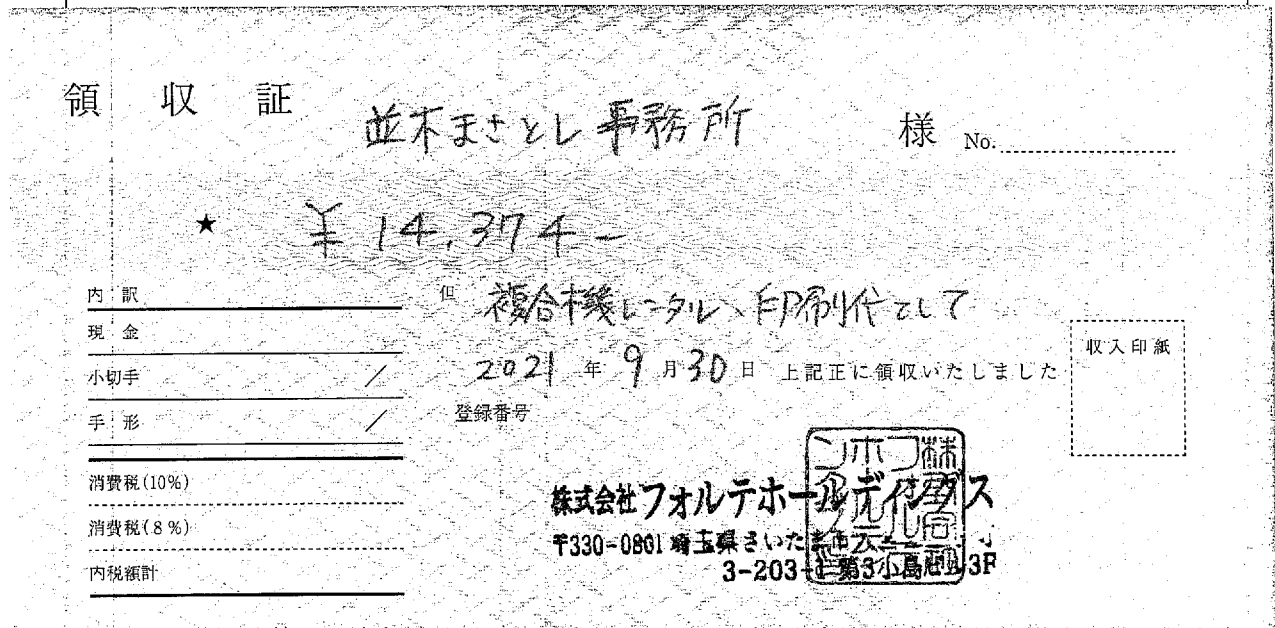 領収証
並木まさとし事務所 様 No.
★ ¥14,374-
内訳
現金
小切手 /
手形 /
消費税(10%)
消費税(8%)
内税額計
但 複合機レンタル、印刷代として
2021年9月30日 上記正に領収いたしました
登録番号
収入印紙
株式会社フォルテホールディングス
〒330-0801 埼玉県さいたま市大
3-203-1 第3小島ビル3F